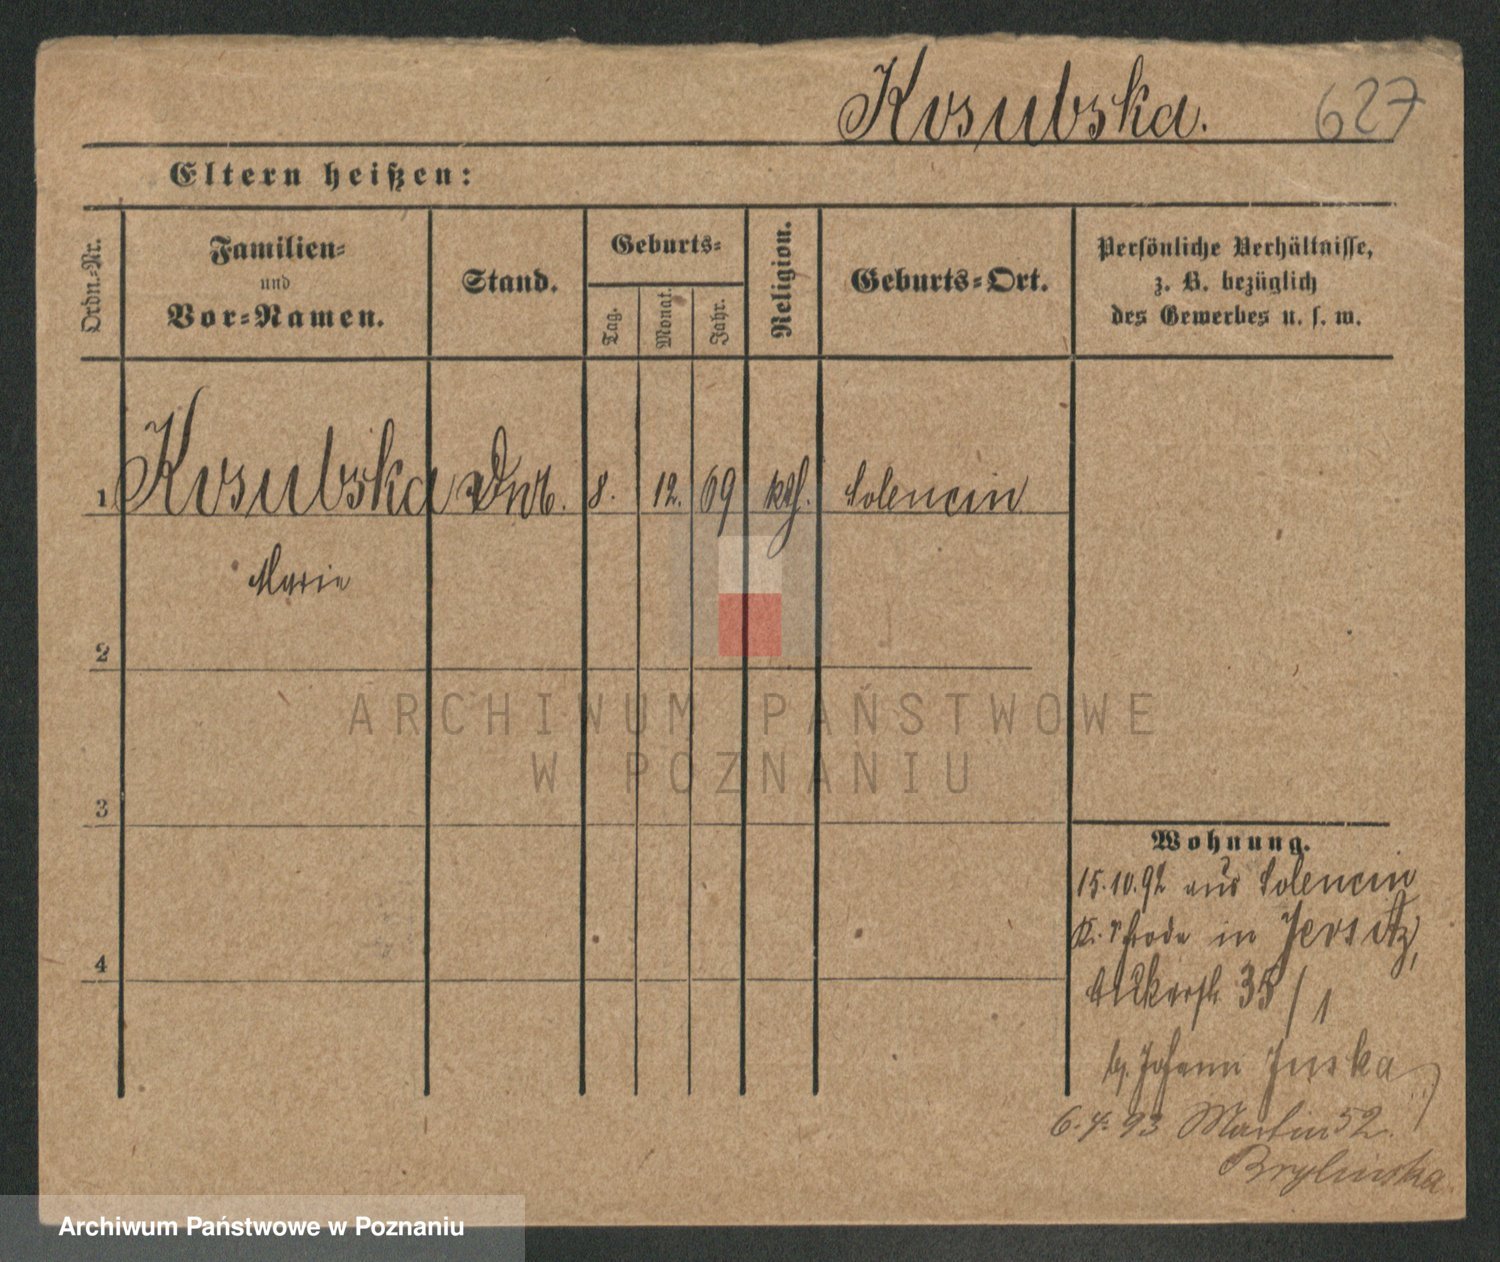 Kosubska. 627
Eltern heißen:
Ordn.-Nr.
Familien-
und
Vor-Namen.
Stand.
Geburts-
Tag.
Monat.
Jahr.
Religion.
Geburts-Ort.
Persönliche Verhältnisse,
z. B. bezüglich
des Gewerbes u. s. w.
1 Kosubska 8. 12. 69 kth. Solencin
Marie
2
3
4
Wohnung.
15.10.92 aus Solencin
K. Schroda in Jersitz,
35/1
b. Johann Juska
6.4.93 Martin 52.
Brylinska
ARCHIWUM PAŃSTWOWE
W POZNANIU
Archiwum Państwowe w Poznaniu